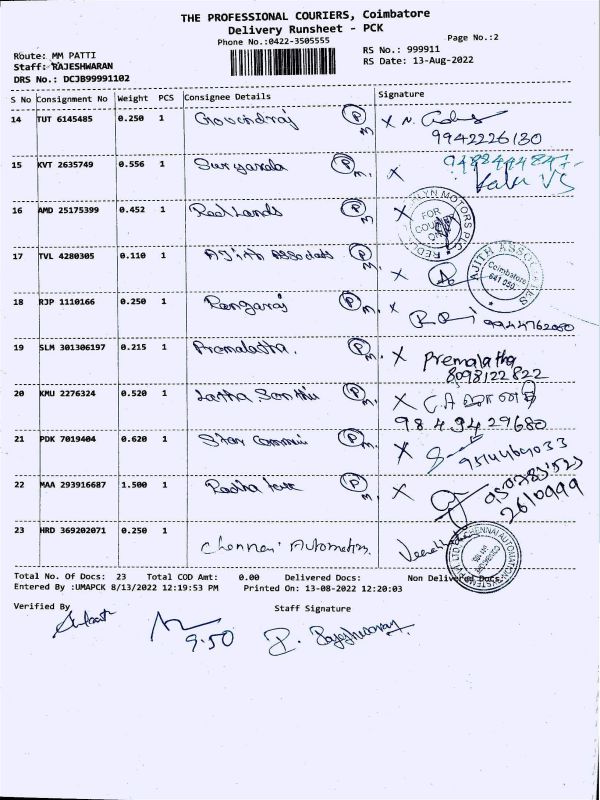 THE PROFESSIONAL COURIERS, Coimbatore
Delivery Runsheet - PCK
Phone No.:0422-3505555
Page No.:2
Route: MM PATTI
RS No.: 999911
Staff: RAJESHWARAN
RS Date: 13-Aug-2022
DRS No.: DCJB99991102
S No Consignment No Weight PCS Consignee Details Signature
14 TUT 6145485 0.250 1 Govindraj P M X
9942226130
15 KVT 2635749 0.556 1 P M. X
16 AMD 25175399 0.452 1 Redlands P M X
MOTORS PLC
FOR
17 TVL 4280305 0.110 1 Ajith Associats P M X
AJITH ASSOCIATES
Coimbatore
641 050
18 RJP 1110166 0.250 1 Rangaraj P M. X
9944762050
19 SLM 301306197 0.215 1 Premalatha. P M. X Premalatha
8098122822
20 KMU 2276324 0.520 1 P M. X
98 4 94 29680
21 PDK 7019404 0.620 1 Star P M. X
9514464033
22 MAA 293916687 1.500 1 Radha P M X
23 HRD 369202071 0.250 1 Chennai Automation
CHENNAI AUTOMATION
Total No. Of Docs: 23 Total COD Amt: 0.00 Delivered Docs: Non Delivered Docs:
Entered By :UMAPCK 8/13/2022 12:19:53 PM Printed On: 13-08-2022 12:20:03
Verified By Staff Signature
9.50 R. Rajeshwaran